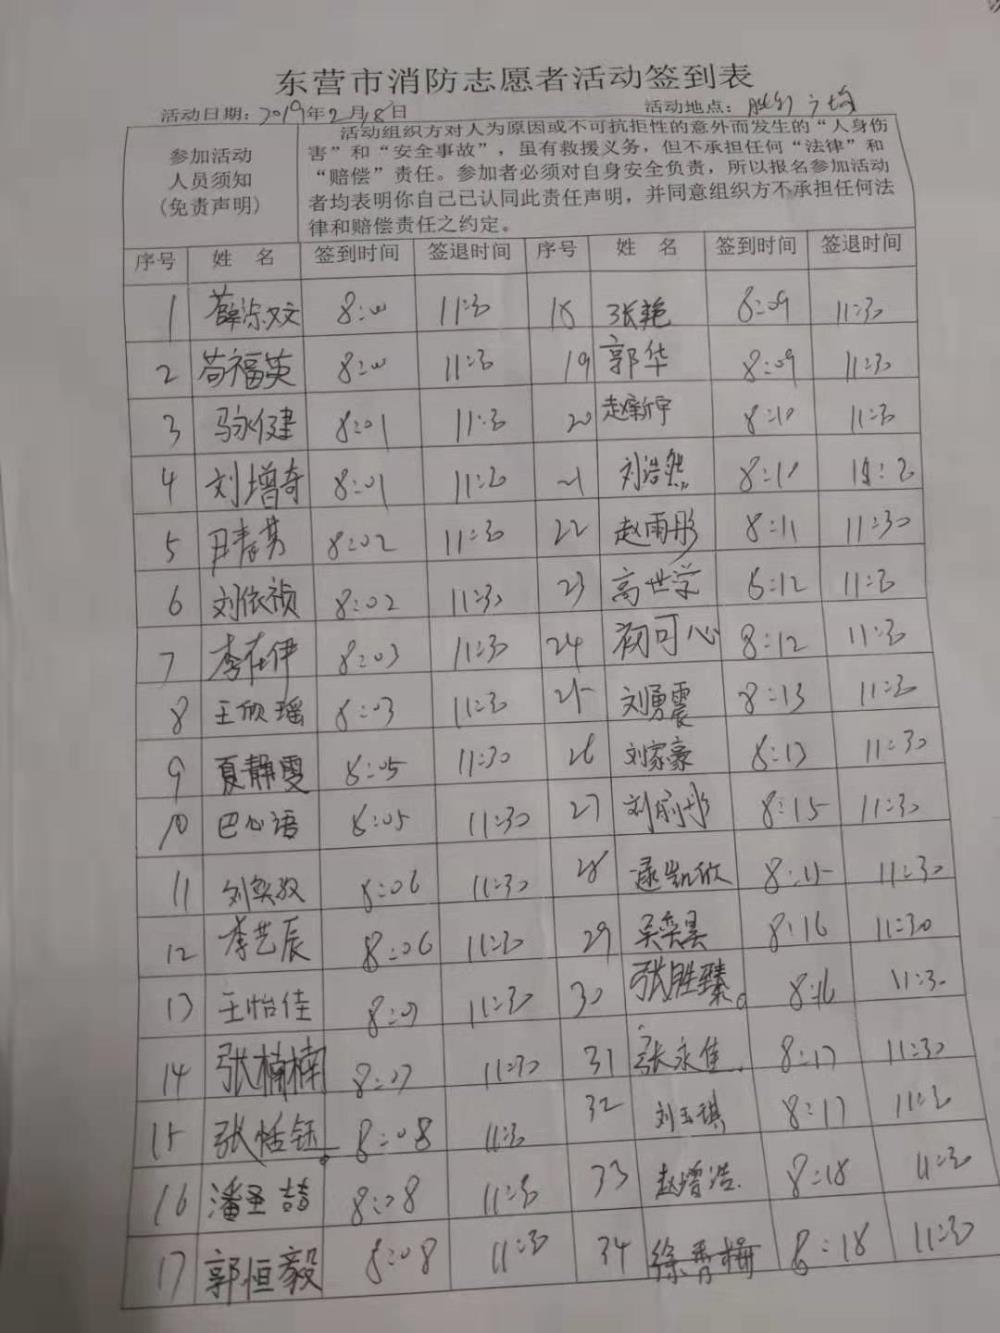 东营市消防志愿者活动签到表
活动日期：2019年2月18日 活动地点：胜利广场
参加活动
人员须知
(免责声明)
活动组织方对人为原因或不可抗拒性的意外而发生的“人身伤
害”和“安全事故”，虽有救援义务，但不承担任何“法律”和
“赔偿”责任。参加者必须对自身安全负责，所以报名参加活动
者均表明你自己已认同此责任声明，并同意组织方不承担任何法
律和赔偿责任之约定。
序号 姓 名 签到时间 签退时间 序号 姓 名 签到时间 签退时间
1 8:00 11:30 18 张艳 8:09 11:30
2 苟福英 8:00 11:30 19 郭华 8:09 11:30
3 马永健 8:01 11:30 20 赵新宇 8:10 11:30
4 刘增奇 8:01 11:30 21 刘浩然 8:10
5 8:02 11:30 22 赵雨彤 8:11 11:30
6 刘依祯 8:02 11:30 23 高世学 8:12 11:30
7 李在伊 8:03 11:30 24 初可心 8:12 11:30
8 王欣瑶 8:03 11:30 25 刘勇震 8:13 11:30
9 夏静雯 8:05 11:30 26 刘家豪 8:13 11:30
10 巴心语 8:05 11:30 27 8:15 11:30
11 8:06 11:30 28 逯凯欣 8:15 11:30
12 李艺辰 8:06 11:30 29 吴奕昊 8:16 11:30
13 王怡佳 8:07 11:30 30 张胜臻 8:16 11:30
14 张楠楠 8:07 11:30 31 张永佳 8:17 11:30
15 张恬钰 8:08 11:30 32 刘玉琪 8:17 11:30
16 潘圣喆 8:08 11:30 33 赵增浩 8:18 11:30
17 郭恒毅 8:08 11:30 34 徐秀梅 8:18 11:30